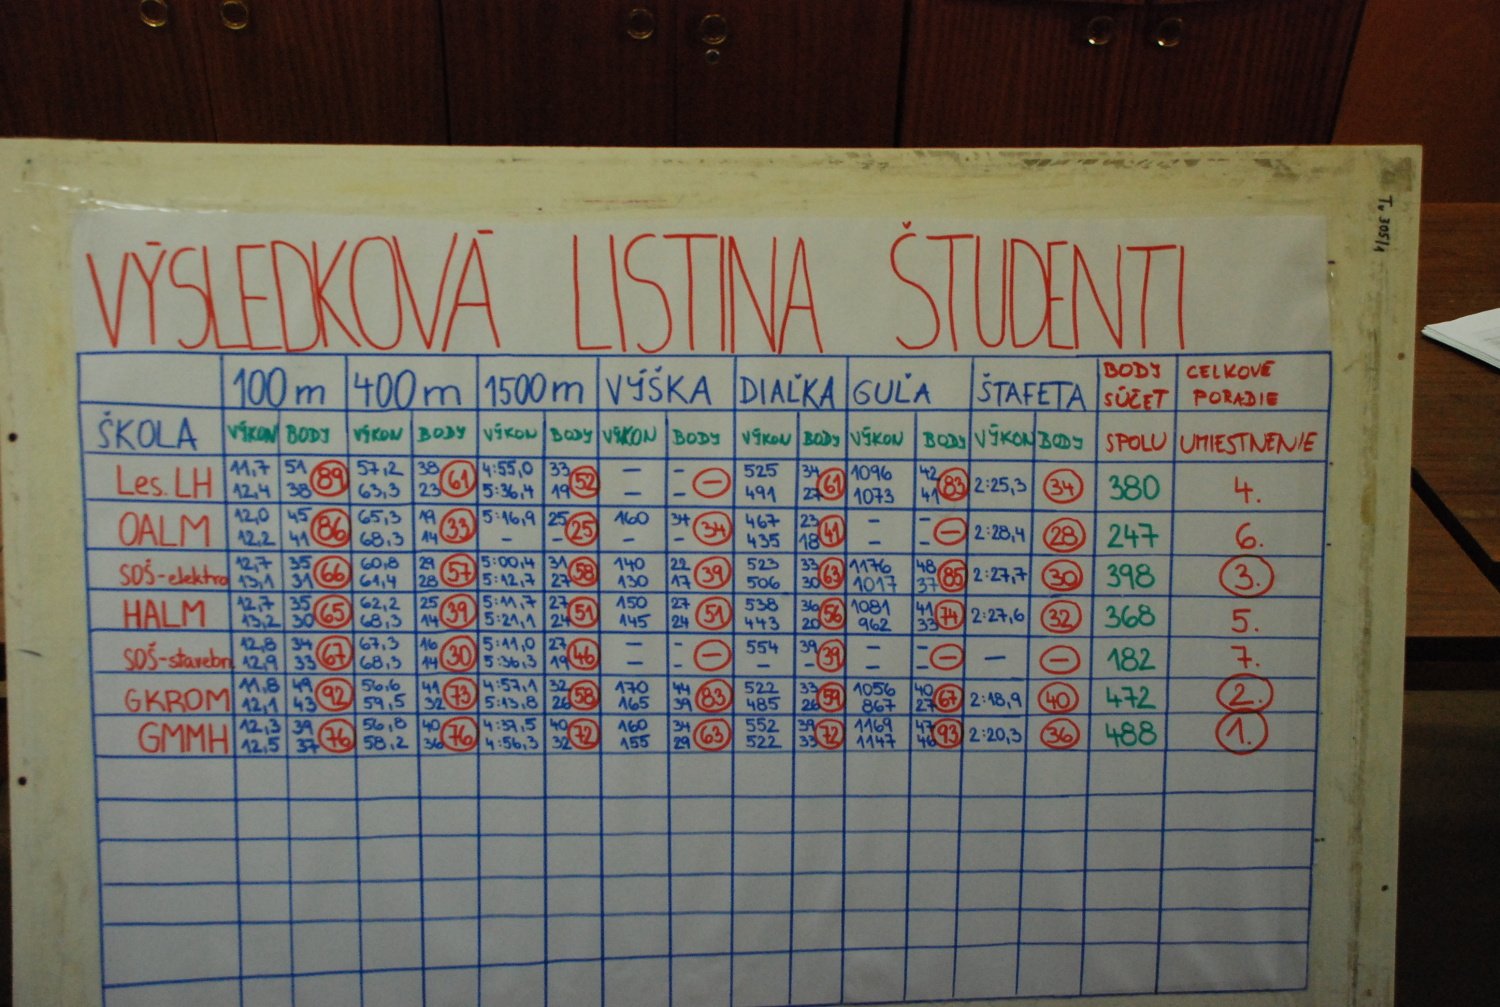 Tv 305/1
VÝSLEDKOVÁ LISTINA ŠTUDENTI
100 m 400 m 1500 m VÝŠKA DIAĽKA GUĽA ŠTAFETA BODY SÚČET CELKOVÉ PORADIE
ŠKOLA VÝKON BODY VÝKON BODY VÝKON BODY VÝKON BODY VÝKON BODY VÝKON BODY VÝKON BODY SPOLU UMIESTNENIE
Les. LH 11,7 51 89 57,2 38 61 4:55,0 33 52 – – – 525 34 61 1096 42 83 2:25,3 34 380 4.
12,4 38 63,3 23 5:36,4 19 – – 491 27 1073 41
OALM 12,0 45 86 65,3 19 33 5:16,9 25 25 160 34 34 467 23 41 – – – 2:28,4 28 247 6.
12,2 41 68,3 14 – – – – 435 18 – –
SOŠ-elektro 12,7 35 66 60,8 29 57 5:00,4 31 58 140 22 39 523 33 63 1176 48 85 2:27,7 30 398 3.
13,1 31 61,4 28 5:12,7 27 130 17 506 30 1017 37
HALM 12,7 35 65 62,2 25 39 5:11,7 27 51 150 27 51 538 36 56 1081 41 74 2:27,6 32 368 5.
13,2 30 68,3 14 5:21,1 24 145 24 443 20 962 33
SOŠ-stavebn 12,8 34 67 67,3 16 30 5:11,0 27 46 – – – 554 39 39 – – – – – 182 7.
12,9 33 68,3 14 5:36,3 19 – – – – – –
GKROM 11,8 49 92 56,6 41 73 4:57,1 32 58 170 44 83 522 33 59 1056 40 67 2:18,9 40 472 2.
12,1 43 59,5 32 5:13,8 26 165 39 485 26 867 27
GMMH 12,3 39 76 56,8 40 76 4:37,5 40 72 160 34 63 552 39 72 1169 47 93 2:20,3 36 488 1.
12,5 37 58,2 36 4:56,3 32 155 29 522 33 1147 46